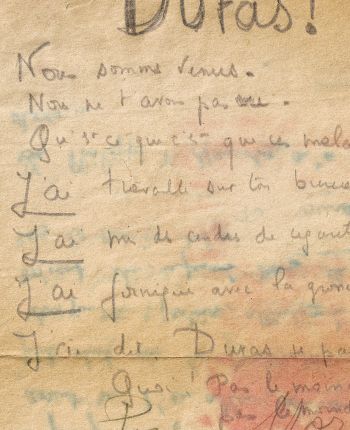 Duras!
Nous sommes venus.
Nous ne t'avons pas vue.
Qu'st ce que c'est que ces
J'ai travaillé sur ton bureau
J'ai mis des cendres de cigaret
J'ai forniqué avec la
J'ai dit Duras se pa
Quoi! Pas le moin
pas le moind